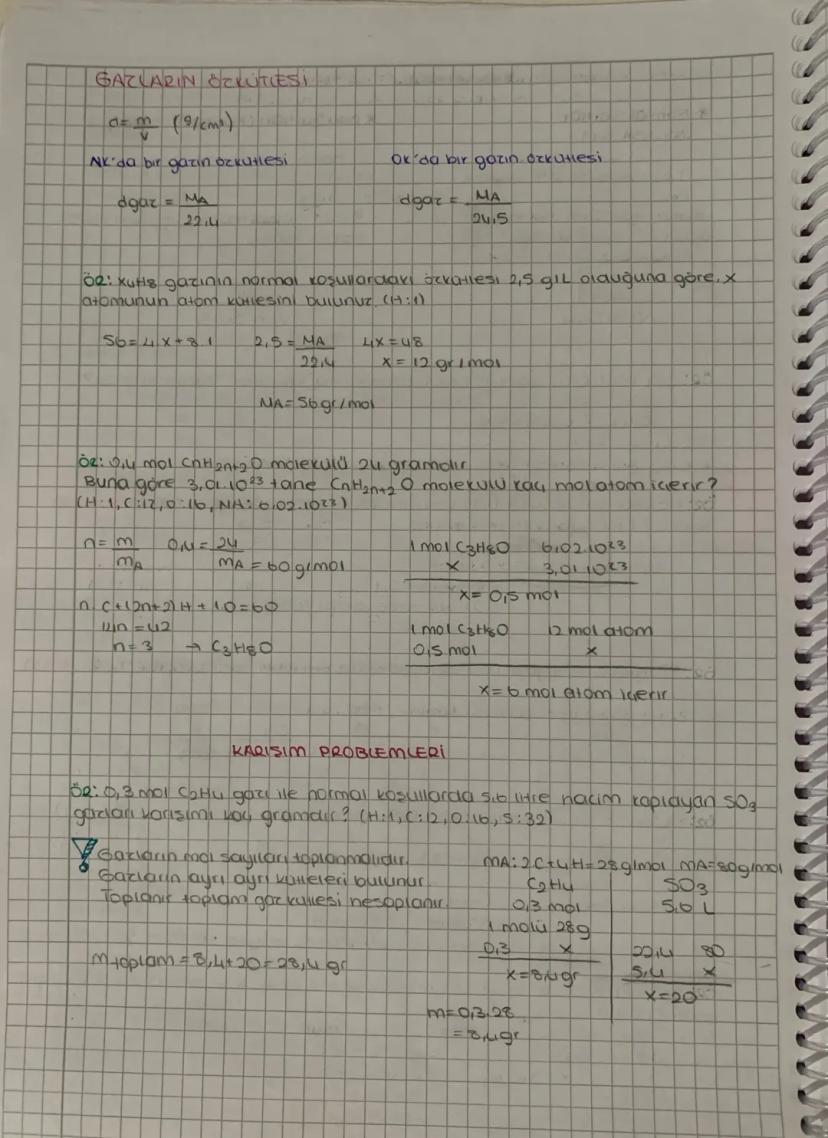 GAZLARIN ÖZKÜTLESİ
d=m/v (g/cm³)
NK'da bir gazın özkütlesi
OK'da bir gazın özkütlesi
dgaz = MA/22,4
dgaz = MA/24,5
ÖR: X4H8 gazının normal koşullardaki özkütlesi 2,5 g/L olduğuna göre, X
atomunun atom kütlesini bulunuz. (H:1)
56=4X+8.1 2,5=MA/22,4 4X=48
x=12 gr/mol
MA=56gr/mol
ÖR: 0,4 mol CnH2n+2O molekülü 24 gramdır
Buna göre 3,01.10²³ tane CnH2n+2O molekülü kaç mol atom içerir?
(H:1, C:12, O:16, NA:6,02.10²³)
n=m/mA 0,4=24/MA=60g/mol
n C+(2n+2)H+1O=60
14n=42
n=3 → C3H8O
1mol C3H8O 6,02.10²³
x 3,01.10²³
x=0,5 mol
1mol C3H8O 12 mol atom
0,5 mol x
x=6 mol atom içerir
KARIŞIM PROBLEMLERİ
ÖR: 0,3 mol C2H4 gazı ile normal koşullarda 5,6 litre hacim kaplayan SO3
gazları karışımı kaç gramdır? (H:1, C:12, O:16, S:32)
Gazların mol sayıları toplanmalıdır.
Gazların ayrı ayrı kütleleri bulunur.
Toplanır toplam gaz kütlesi hesaplanır.
mtoplam=8,4+20=28,4 gr
MA:2C+4H=28g/mol MA=80g/mol
C2H4 SO3
0,3 mol 5,6 L
1 molü 28g
0,3 x
x=8,4gr
22,4 80
5,4 x
x=20
m=0,3.28
=8,4gr